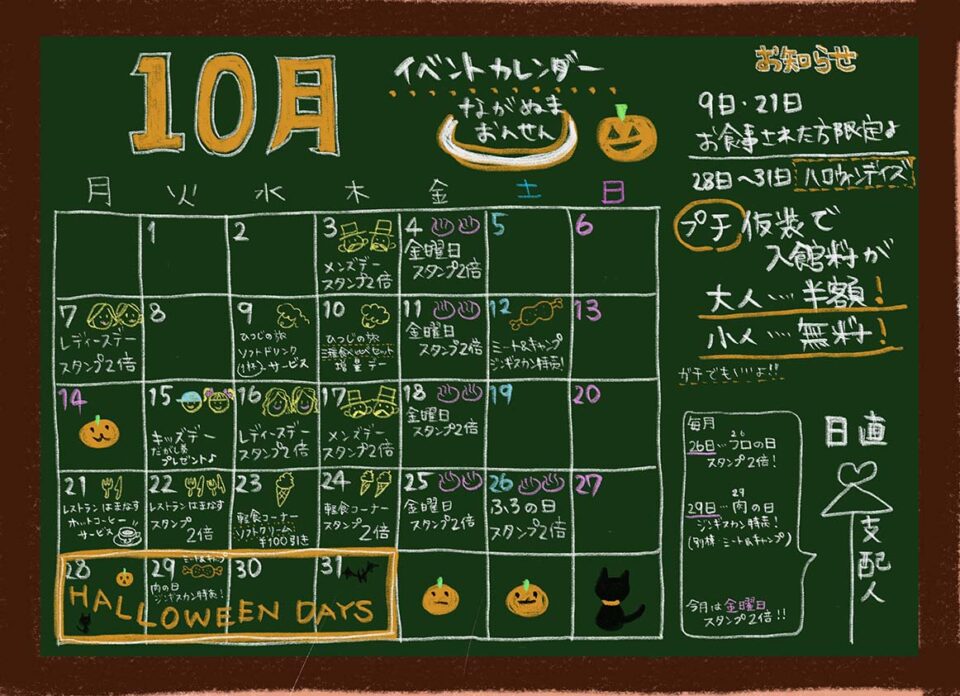 10月
イベントカレンダー
ながぬま
おんせん
月 火 水 木 金 土 日
1
2
3
メンズデー
スタンプ2倍
4
金曜日
スタンプ2倍
5
6
7
レディースデー
スタンプ2倍
8
9
ひつじの旅
ソフトドリンク
サービス
10
ひつじの旅
三種食べ比べセット
増量デー
11
金曜日
スタンプ2倍
12
ミート&キャンプ
ジンギスカン特売!
13
14
15
キッズデー
だがし券
プレゼント♪
16
レディースデー
スタンプ2倍
17
メンズデー
スタンプ2倍
18
金曜日
スタンプ2倍
19
20
21
レストランはまなす
ホットコーヒー
サービス
22
レストランはまなす
スタンプ
2倍
23
軽食コーナー
ソフトクリーム
¥100引き
24
軽食コーナー
スタンプ
2倍
25
金曜日
スタンプ2倍
26
ふろの日
スタンプ2倍
27
28
29
ミート&キャンプ
肉の日
ジンギスカン特売!
30
31
HALLOWEEN DAYS
お知らせ
9日・21日
お食事された方限定♪
28日~31日 ハロウィンデイズ
プチ仮装で
入館料が
大人…半額!
小人…無料!
ガチでもいいよ!!
毎月
26
26日…フロの日
スタンプ2倍!
29
29日…肉の日
ジンギスカン特売!
(別棟ミート&キャンプ)
今月は金曜日
スタンプ2倍!!
日直
支配人